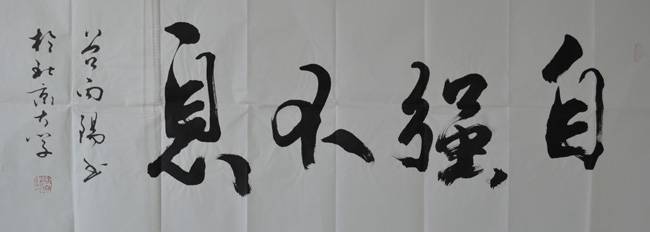 自强不息
谷向阳书
于北京大学